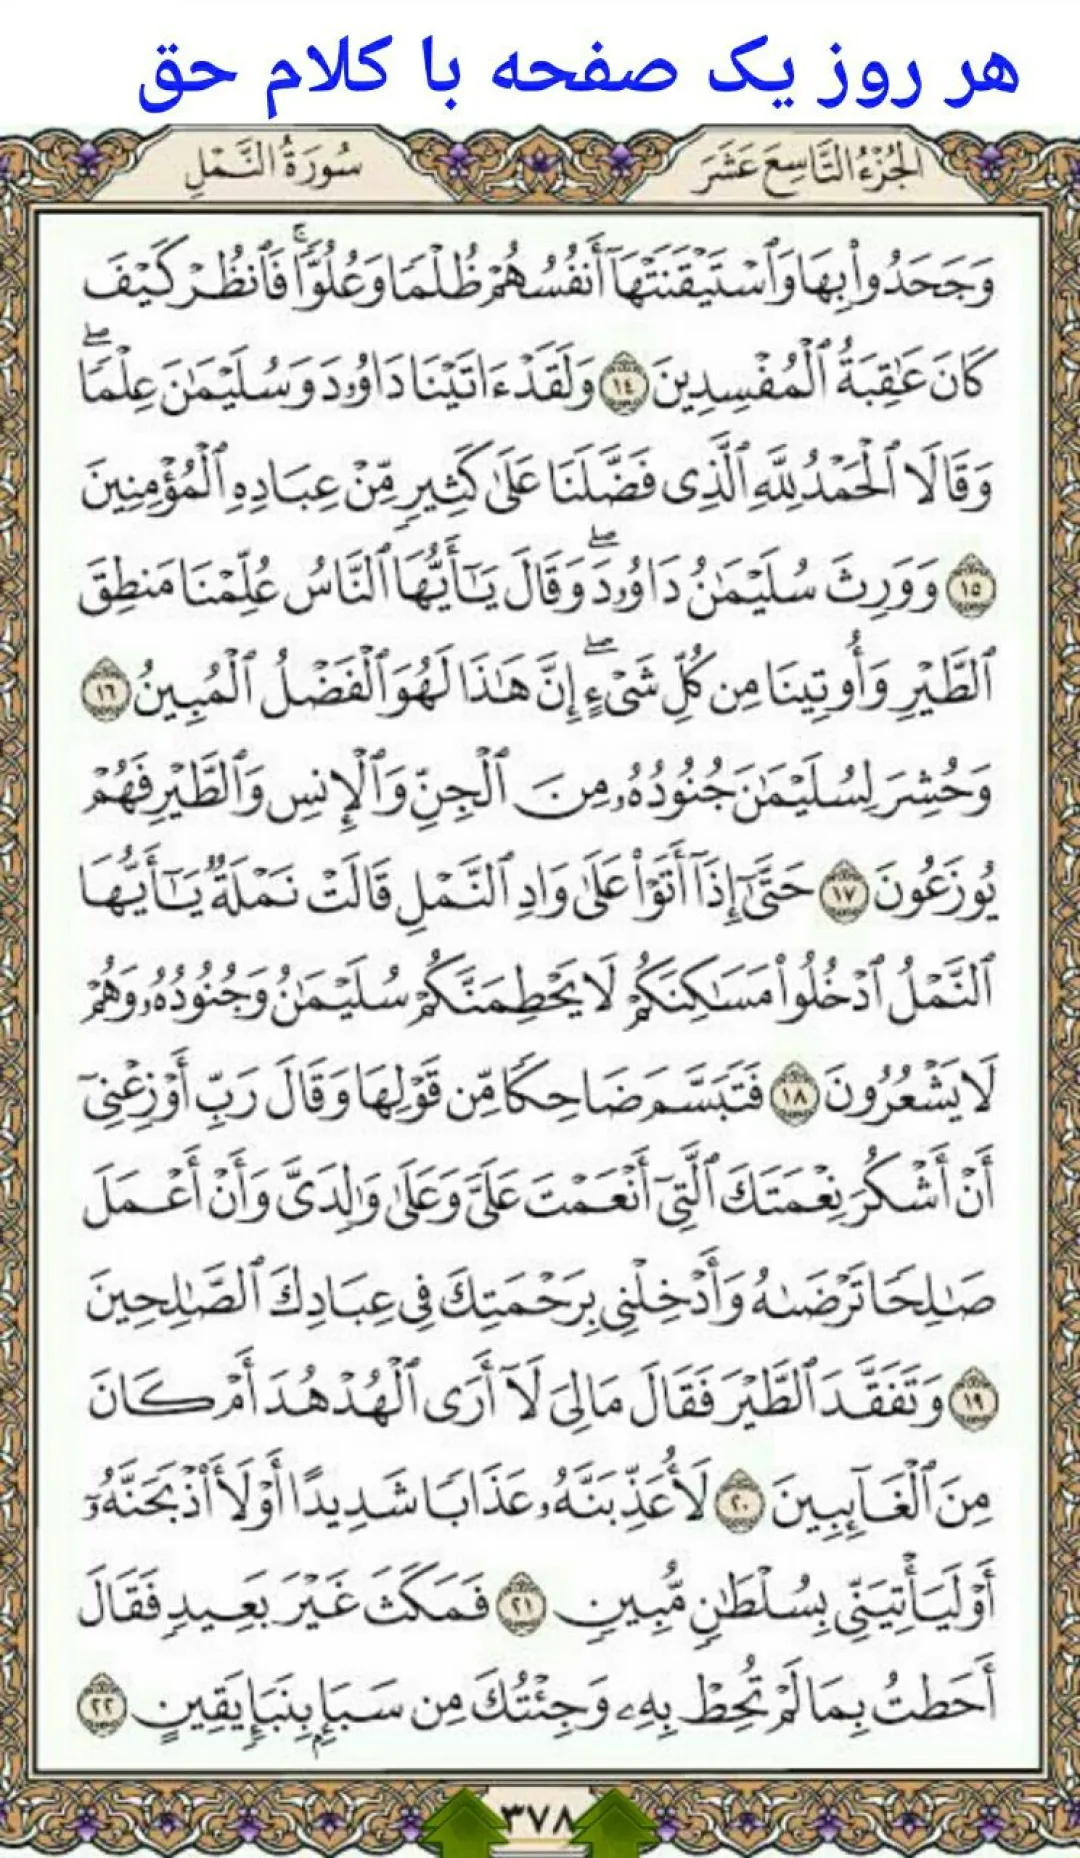 هر روز یک صفحه با کلام حق
الجُزْءُ التَّاسِعَ عَشَرَ
سُورَةُ النَّمْلِ
وَجَحَدُوا۟ بِهَا وَٱسْتَيْقَنَتْهَآ أَنفُسُهُمْ ظُلْمًا وَعُلُوًّا ۚ فَٱنظُرْ كَيْفَ
كَانَ عَٰقِبَةُ ٱلْمُفْسِدِينَ ١٤ وَلَقَدْ ءَاتَيْنَا دَاوُۥدَ وَسُلَيْمَٰنَ عِلْمًا ۖ
وَقَالَا ٱلْحَمْدُ لِلَّهِ ٱلَّذِى فَضَّلَنَا عَلَىٰ كَثِيرٍ مِّنْ عِبَادِهِ ٱلْمُؤْمِنِينَ
١٥ وَوَرِثَ سُلَيْمَٰنُ دَاوُۥدَ ۖ وَقَالَ يَٰٓأَيُّهَا ٱلنَّاسُ عُلِّمْنَا مَنطِقَ
ٱلطَّيْرِ وَأُوتِينَا مِن كُلِّ شَىْءٍ ۖ إِنَّ هَٰذَا لَهُوَ ٱلْفَضْلُ ٱلْمُبِينُ ١٦
وَحُشِرَ لِسُلَيْمَٰنَ جُنُودُهُۥ مِنَ ٱلْجِنِّ وَٱلْإِنسِ وَٱلطَّيْرِ فَهُمْ
يُوزَعُونَ ١٧ حَتَّىٰٓ إِذَآ أَتَوْا۟ عَلَىٰ وَادِ ٱلنَّمْلِ قَالَتْ نَمْلَةٌ يَٰٓأَيُّهَا
ٱلنَّمْلُ ٱدْخُلُوا۟ مَسَٰكِنَكُمْ لَا يَحْطِمَنَّكُمْ سُلَيْمَٰنُ وَجُنُودُهُۥ وَهُمْ
لَا يَشْعُرُونَ ١٨ فَتَبَسَّمَ ضَاحِكًا مِّن قَوْلِهَا وَقَالَ رَبِّ أَوْزِعْنِىٓ
أَنْ أَشْكُرَ نِعْمَتَكَ ٱلَّتِىٓ أَنْعَمْتَ عَلَىَّ وَعَلَىٰ وَٰلِدَىَّ وَأَنْ أَعْمَلَ
صَٰلِحًا تَرْضَىٰهُ وَأَدْخِلْنِى بِرَحْمَتِكَ فِى عِبَادِكَ ٱلصَّٰلِحِينَ
١٩ وَتَفَقَّدَ ٱلطَّيْرَ فَقَالَ مَا لِىَ لَآ أَرَى ٱلْهُدْهُدَ أَمْ كَانَ
مِنَ ٱلْغَآئِبِينَ ٢٠ لَأُعَذِّبَنَّهُۥ عَذَابًا شَدِيدًا أَوْ لَأَا۟ذْبَحَنَّهُۥٓ
أَوْ لَيَأْتِيَنِّى بِسُلْطَٰنٍ مُّبِينٍ ٢١ فَمَكَثَ غَيْرَ بَعِيدٍ فَقَالَ
أَحَطتُ بِمَا لَمْ تُحِطْ بِهِۦ وَجِئْتُكَ مِن سَبَإٍۭ بِنَبَإٍ يَقِينٍ ٢٢
٣٧٨